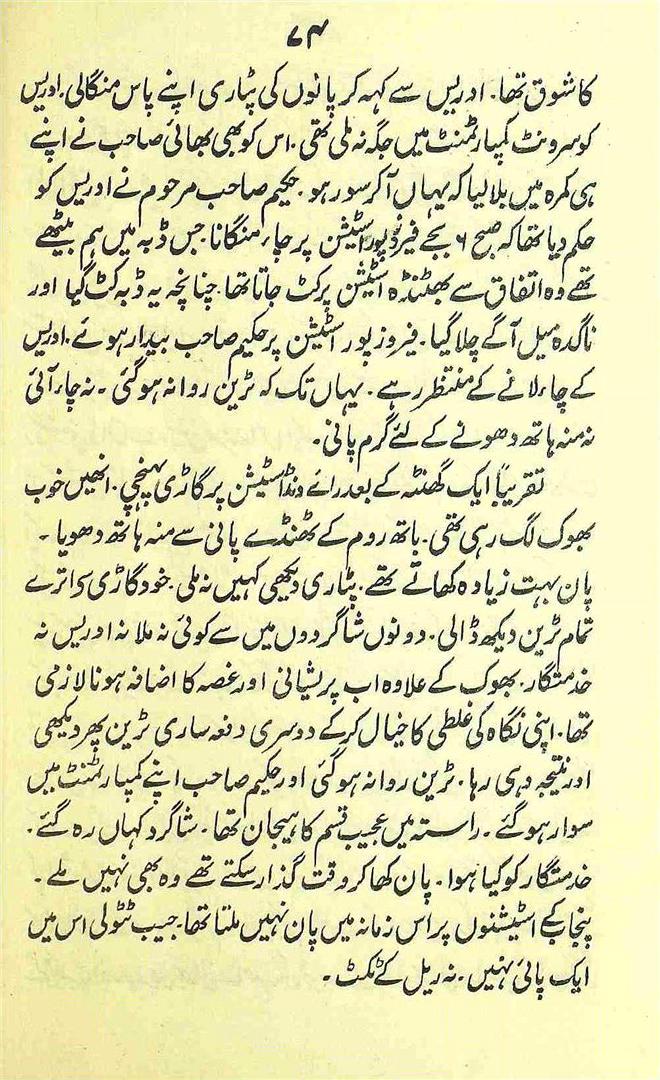 ۷۴
کا شوق تھا۔ ادریس سے کہہ کر پانوں کی پٹاری اپنے پاس منگالی۔ ادریس
کو سرونٹ کمپارٹمنٹ میں جگہ نہ ملی تھی۔ اس کو بھی بھائی صاحب نے اپنے
ہی کمرہ میں بلا لیا کہ یہاں آکر سو رہو۔ حکیم صاحب مرحوم نے ادریس کو
حکم دیا تھا کہ صبح ۶ بجے فیروز پور اسٹیشن پر چاء منگانا جس ڈبہ میں ہم بیٹھے
تھے وہ اتفاق سے بھٹنڈہ اسٹیشن پر کٹ جاتا تھا۔ چنانچہ یہ ڈبہ کٹ گیا اور
ناگدہ میل آگے چلا گیا۔ فیروز پور اسٹیشن پر حکیم صاحب بیدار ہوئے۔ ادریس
کے چاء لانے کے منتظر رہے۔ یہاں تک کہ ٹرین روانہ ہوگئی۔ نہ چاء آئی
نہ منہ ہاتھ دھونے کے لئے گرم پانی۔
تقریباً ایک گھنٹہ کے بعد رائے ونڈ اسٹیشن پر گاڑی پہنچی۔ انھیں خوب
بھوک لگ رہی تھی۔ باتھ روم کے ٹھنڈے پانی سے منہ ہاتھ دھویا۔
پان بہت زیادہ کھاتے تھے۔ پٹاری دیکھی کہیں نہ ملی۔ خود گاڑی سے اترے
تمام ٹرین دیکھ ڈالی۔ دونوں شاگردوں میں سے کوئی نہ ملا نہ ادریس نہ
خدمتگار۔ بھوک کے علاوہ اب پریشانی اور غصہ کا اضافہ ہونا لازمی
تھا۔ اپنی نگاہ کی غلطی کا خیال کرکے دوسری دفعہ ساری ٹرین پھر دیکھی
اور نتیجہ وہی رہا۔ ٹرین روانہ ہوگئی اور حکیم صاحب اپنے کمپارٹمنٹ میں
سوار ہوگئے۔ راستہ میں عجیب قسم کا ہیجان تھا۔ شاگرد کہاں رہ گئے۔
خدمتگار کو کیا ہوا۔ پان کھا کر وقت گذار سکتے تھے وہ بھی نہیں ملے۔
پنجاب کے اسٹیشنوں پر اس زمانہ میں پان نہیں ملتا تھا۔ جیب ٹٹولی اس میں
ایک پائی نہیں۔ نہ ریل کے ٹکٹ۔